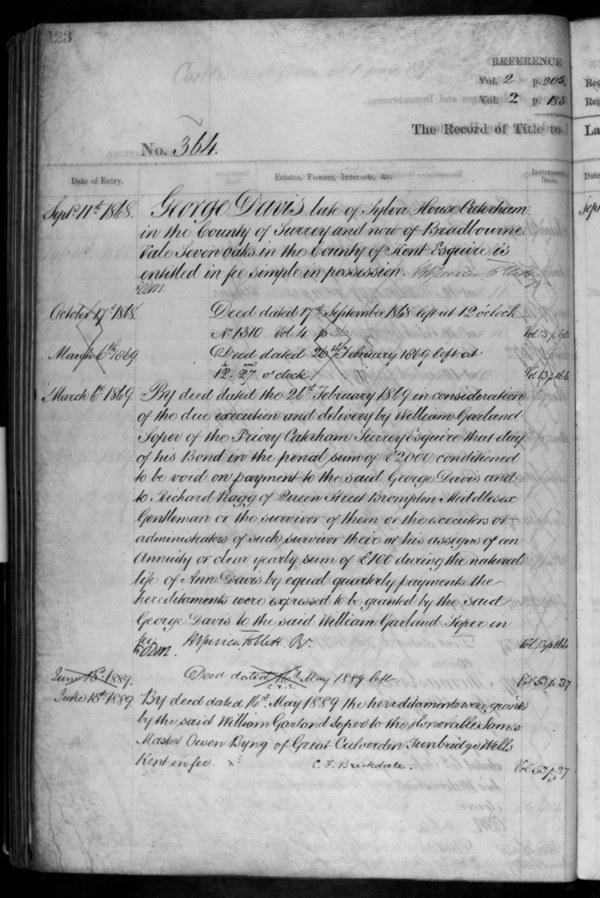 123
REFERENCE
Vol. 2 p. 205.
Vol. 2 p. 185
The Record of Title to
No. 364.
Date of Entry.
Estates, Powers, Interests, &c.
Instrument Book.
Septr 11th 1868.
George Davis late of Sylva House Caterham
in the County of Surrey and now of Bradbourne
Vale Seven oaks in the County of Kent Esquire is
entitled in fee simple in possession.
October 17th 1868.
Deed dated 17th September 1868 left at 12 o'clock
No 1310 Vol 4 p
Vol 13 p
March 6th 1869
Deed dated 26th February 1869 left at
12. 27 o'clock
Vol 13 p 166
March 6th 1869.
By deed dated the 26th February 1869 in consideration
of the due execution and delivery by William Garland
Soper of the Priory Caterham Surrey Esquire that day
of his Bond in the penal sum of £2000 conditioned
to be void on payment to the said George Davis and
to Richard Nagg of Queen Street Brompton Middlesex
Gentleman or the survivor of them or the executors or
administrators of such survivor their or his assigns of an
Annuity or clear yearly sum of £100 during the natural
life of Ann Davis by equal quarterly payments the
hereditaments were expressed to be granted by the said
George Davis to the said William Garland Soper in
fee.
Vol 13 p 166
June 15th 1889.
Deed dated 16th May 1889 left
Vol 53 p. 37
June 15th 1889
By deed dated 16th May 1889 the hereditaments were granted
by the said William Garland Soper to the Honorable James
Master Owen Byng of Great Culverden Tunbridge Wells
Kent in fee
C. F. Brickdale.
Vol 53 p. 37